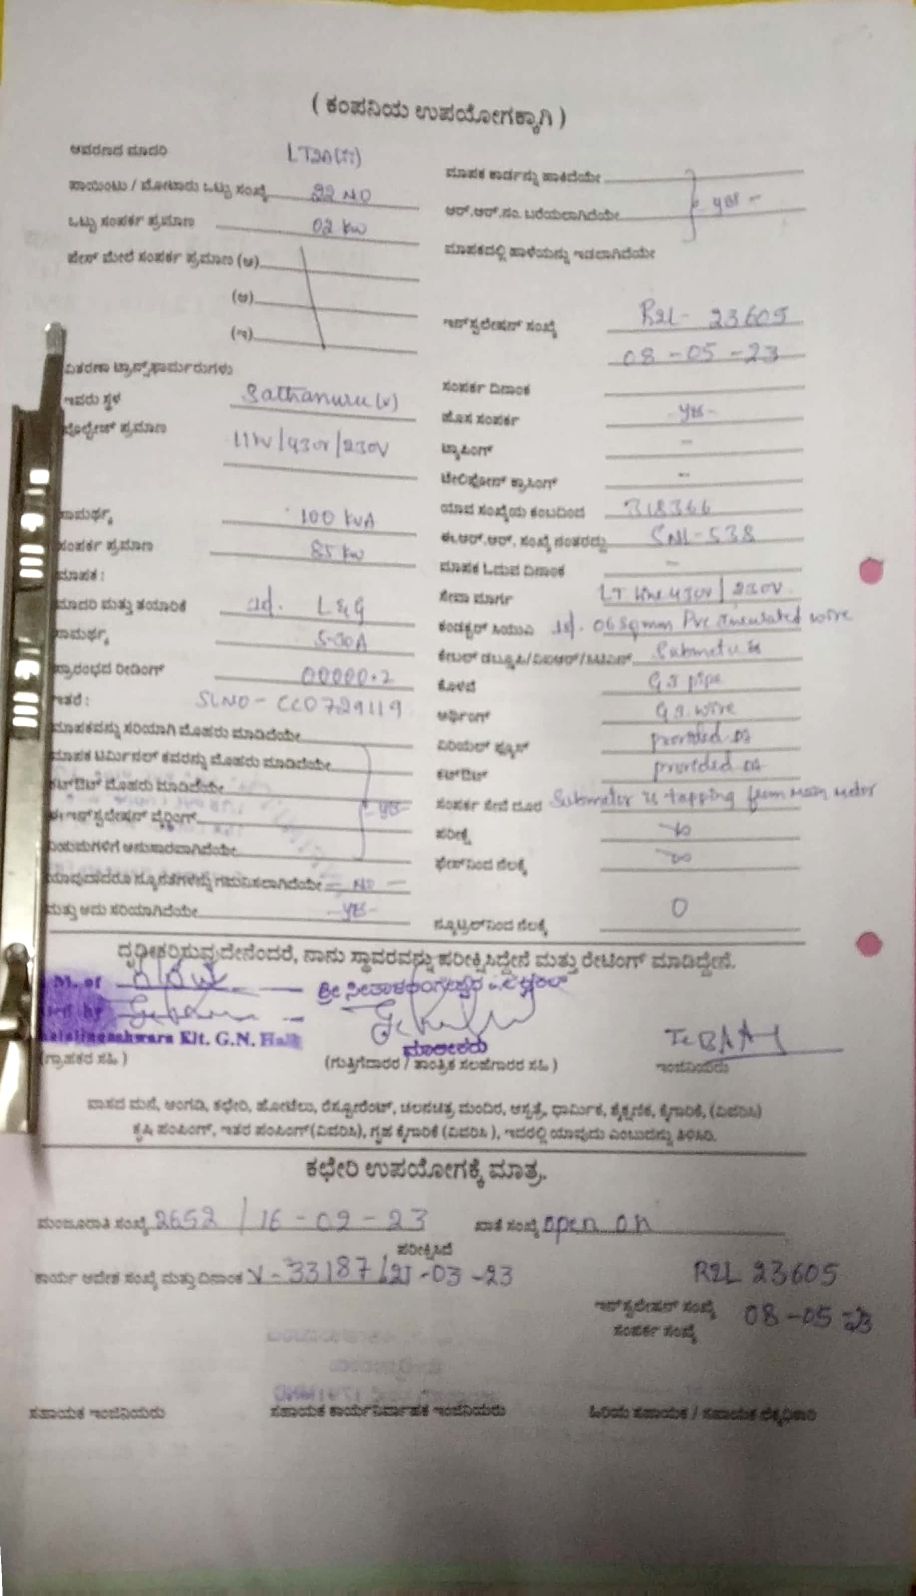 ( ಕಂಪನಿಯ ಉಪಯೋಗಕ್ಕಾಗಿ )
ಆವರಣದ ಮಾದರಿ LT2A(ii)
ಪಾಯಿಂಟು / ಮೋಟಾರು ಒಟ್ಟು ಸಂಖ್ಯೆ 22 NO
ಒಟ್ಟು ಸಂಪರ್ಕ ಪ್ರಮಾಣ 02 kw
ಫೇಸ್ ಮೇಲೆ ಸಂಪರ್ಕ ಪ್ರಮಾಣ (ಅ)
(ಆ)
(ಇ)
ವಿತರಣಾ ಟ್ರಾನ್ಸ್‌ಫಾರ್ಮರುಗಳು
ಇವರು ಸ್ಥಳ Sathanuru (v)
ವೋಲ್ಟೇಜ್ ಪ್ರಮಾಣ 11kv/430v/230V
ಸಾಮರ್ಥ್ಯ 100 kVA
ಸಂಪರ್ಕ ಪ್ರಮಾಣ 85 kw
ಮಾಪಕ :
ಮಾದರಿ ಮತ್ತು ತಯಾರಿಕೆ L&G
ಸಾಮರ್ಥ್ಯ 5-30A
ಪ್ರಾರಂಭದ ರೀಡಿಂಗ್ 00000.2
ಇತರೆ : SLNO - CC0729119
ಮಾಪಕವನ್ನು ಸರಿಯಾಗಿ ಮೊಹರು ಮಾಡಿದೆಯೇ
ಮಾಪಕ ಟರ್ಮಿನಲ್ ಕವರನ್ನು ಮೊಹರು ಮಾಡಿದೆಯೇ
ಕಟ್‌ಔಟ್ ಮೊಹರು ಮಾಡಿದೆಯೇ yes
ಈ ಇನ್‌ಸ್ಟಲೇಷನ್ ವೈರಿಂಗ್
ನಿಯಮಗಳಿಗೆ ಅನುಸಾರವಾಗಿದೆಯೇ
ಯಾವುದಾದರೂ ನ್ಯೂನತೆಗಳನ್ನು ಗಮನಿಸಲಾಗಿದೆಯೇ - NO -
ಮತ್ತು ಅದು ಸರಿಯಾಗಿದೆಯೇ -yes-
ಮಾಪಕ ಕಾರ್ಡನ್ನು ಹಾಕಿದೆಯೇ
ಆರ್.ಆರ್.ನಂ. ಬರೆಯಲಾಗಿದೆಯೇ - yes -
ಮಾಪಕದಲ್ಲಿ ಹಾಳೆಯನ್ನು ಇಡಲಾಗಿದೆಯೇ
ಇನ್‌ಸ್ಟಲೇಷನ್ ಸಂಖ್ಯೆ R2L- 23605
08 -05 -23
ಸಂಪರ್ಕ ದಿನಾಂಕ
ಹೊಸ ಸಂಪರ್ಕ -yes-
ಟ್ಯಾಪಿಂಗ್ -
ಟೆಲಿಫೋನ್ ಕ್ರಾಸಿಂಗ್ -
ಯಾವ ಸಂಖ್ಯೆಯ ಕಂಬದಿಂದ 318366
ಈ.ಆರ್.ಆರ್. ಸಂಖ್ಯೆ ನಂತರದ್ದು SNL-538
ಮಾಪಕ ಓದುವ ದಿನಾಂಕ -
ಸೇವಾ ಮಾರ್ಗ LT line 430v/230V
ಕಂಡಕ್ಟರ್ ಸಿಯುಎ 06 Sqmm Pvc insulated wire
ಕೊಳವೆ G I pipe
ಅರ್ಥಿಂಗ್ G I wire
ಏರಿಯಲ್ ಫ್ಯೂಸ್ provided
ಕಟ್‌ಔಟ್ provided
ಸಂಪರ್ಕ ಸೇವೆ ದೂರ Submeter is tapping from main meter
ಪರೀಕ್ಷೆ ∞
ಫೇಸ್‌ನಿಂದ ನೆಲಕ್ಕೆ ∞
ನ್ಯೂಟ್ರಲ್‌ನಿಂದ ನೆಲಕ್ಕೆ 0
ದೃಢೀಕರಿಸುವುದೇನೆಂದರೆ, ನಾನು ಸ್ಥಾವರವನ್ನು ಪರೀಕ್ಷಿಸಿದ್ದೇನೆ ಮತ್ತು ರೇಟಿಂಗ್ ಮಾಡಿದ್ದೇನೆ.
M. of
G.N. Halli
ಮಾಲೀಕರು
(ಗ್ರಾಹಕರ ಸಹಿ )
(ಗುತ್ತಿಗೆದಾರರ / ತಾಂತ್ರಿಕ ಸಲಹೆಗಾರರ ಸಹಿ )
ಇಂಜಿನಿಯರು
ವಾಸದ ಮನೆ, ಅಂಗಡಿ, ಕಛೇರಿ, ಹೋಟೆಲು, ರೆಸ್ಟೋರೆಂಟ್, ಚಲನಚಿತ್ರ ಮಂದಿರ, ಆಸ್ಪತ್ರೆ, ಧಾರ್ಮಿಕ, ಶೈಕ್ಷಣಿಕ, ಕೈಗಾರಿಕೆ, (ವಿವರಿಸಿ)
ಕೃಷಿ ಪಂಪಿಂಗ್, ಇತರ ಪಂಪಿಂಗ್ (ವಿವರಿಸಿ), ಗೃಹ ಕೈಗಾರಿಕೆ (ವಿವರಿಸಿ ), ಇದರಲ್ಲಿ ಯಾವುದು ಎಂಬುದನ್ನು ತಿಳಿಸಿರಿ.
ಕಛೇರಿ ಉಪಯೋಗಕ್ಕೆ ಮಾತ್ರ.
ಮಂಜೂರಾತಿ ಸಂಖ್ಯೆ 2652 / 16 - 02 - 23 ಖಾತೆ ಸಂಖ್ಯೆ open on
ಪರೀಕ್ಷಿಸಿದೆ
ಕಾರ್ಯ ಆದೇಶ ಸಂಖ್ಯೆ ಮತ್ತು ದಿನಾಂಕ V-33187/21-03-23 R2L 23605
ಇನ್‌ಸ್ಟಲೇಷನ್ ಸಂಖ್ಯೆ 08-05-23
ಸಂಪರ್ಕ ಸಂಖ್ಯೆ
ಸಹಾಯಕ ಇಂಜಿನಿಯರು ಸಹಾಯಕ ಕಾರ್ಯನಿರ್ವಾಹಕ ಇಂಜಿನಿಯರು ಹಿರಿಯ ಸಹಾಯಕ / ಸಹಾಯಕ ಲೆಕ್ಕಾಧಿಕಾರಿ